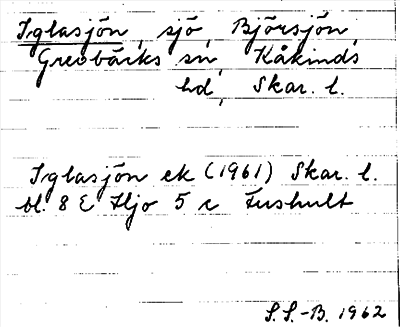 Iglasjön, sjö, Björsjön,
Grevbäcks sn, Kåkinds
hd, Skar. l.
Iglasjön ek (1961) Skar. l.
bl. 8 E Hjo 5 c Fushult
S.S.-B. 1962